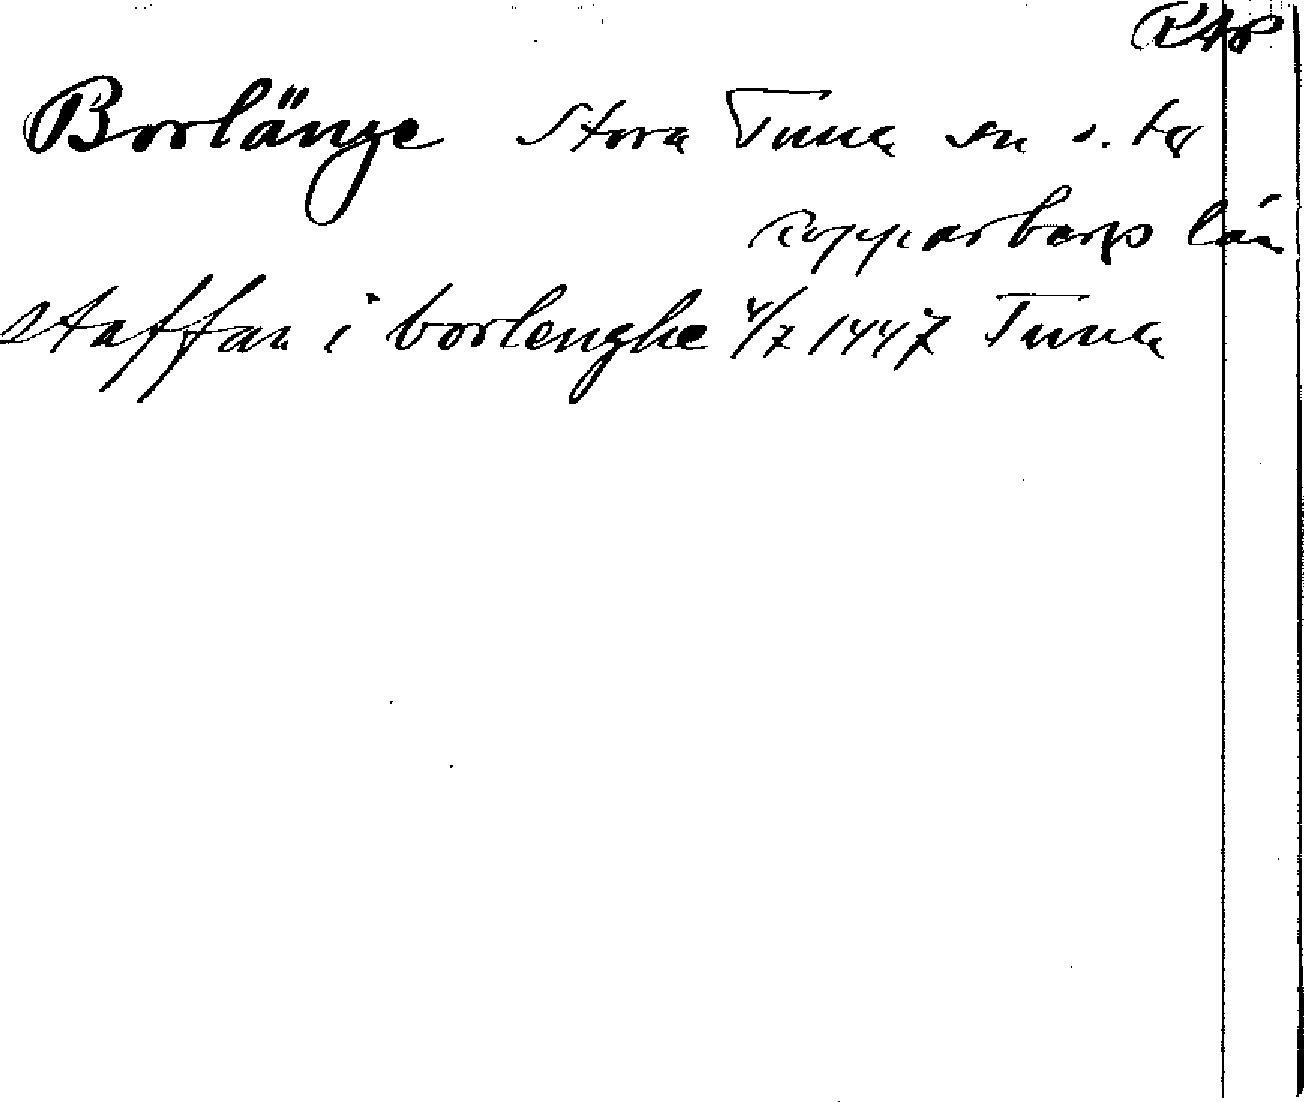 RAp
Borlänge Stora Tuna sn o. tg
Kopparbergs län
Staffan i borlenghe 4/7 1447 Tuna